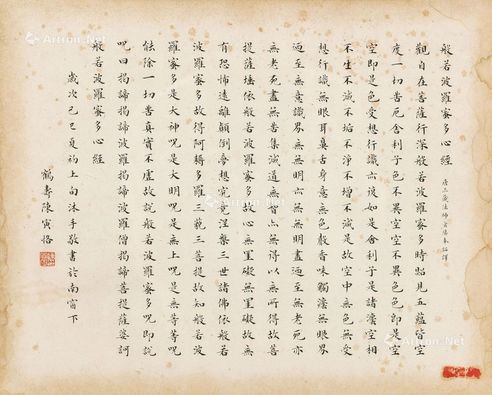 般若波羅蜜多心經
唐三藏法師玄奘奉詔譯
觀自在菩薩行深般若波羅蜜多時照見五蘊皆空
度一切苦厄舍利子色不異空空不異色色即是空
空即是色受想行識亦復如是舍利子是諸灋空相
不生不滅不垢不淨不增不減是故空中無色無受
想行識無眼耳鼻舌身意無色聲香味觸灋無眼界
迺至無意識界無無明亦無無明盡迺至無老死亦
無老死盡無苦集滅道無智亦無得以無所得故菩
提薩埵依般若波羅蜜多故心無罣礙無罣礙故無
有恐怖遠離顛倒夢想究竟涅槃三世諸佛依般若
波羅蜜多故得阿耨多羅三藐三菩提故知般若波
羅蜜多是大神呪是大明呪是無上呪是無等等呪
能除一切苦真實不虛故說般若波羅蜜多呪即說
呪曰揭諦揭諦波羅揭諦波羅僧揭諦菩提薩婆訶
般若波羅蜜多心經
歲次己巳夏上旬沐手敬書於南窗下
鶴壽陳寅恪
Artron.Net